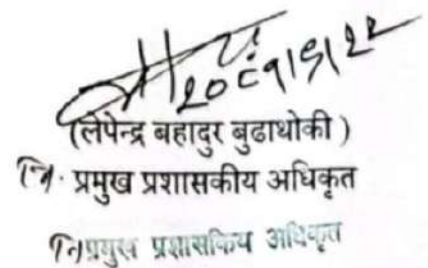 २०८१।९।२२
(लेपेन्द्र बहादुर बुढाथोकी )
नि. प्रमुख प्रशासकीय अधिकृत
नि.प्रमुख प्रशासकिय अधिकृत